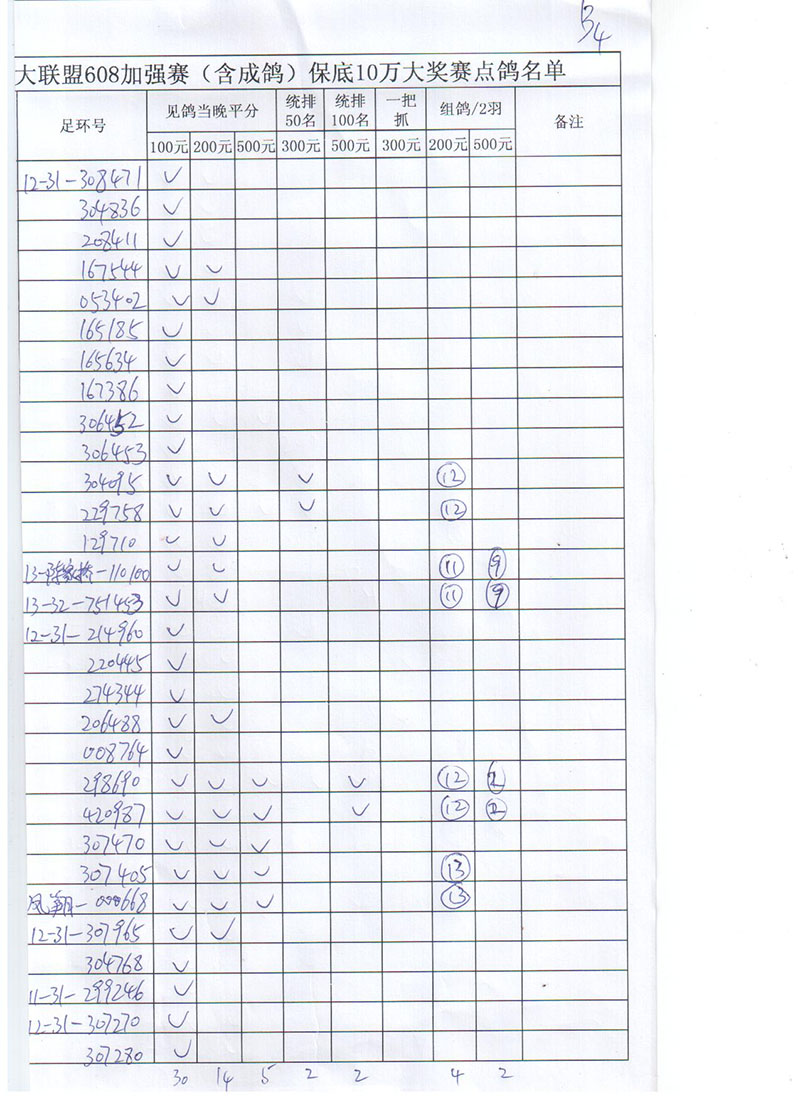 34
大联盟608加强赛（含成鸽）保底10万大奖赛点鸽名单
足环号 见鸽当晚平分 统排50名 统排100名 一把抓 组鸽/2羽 备注
100元 200元 500元 300元 500元 300元 200元 500元
12-31-308471 ✓
304836 ✓
208411 ✓
167544 ✓ ✓
053402 ✓ ✓
165185 ✓
165634 ✓
167386 ✓
306452 ✓
306453 ✓
304095 ✓ ✓ ✓ ⑫
229758 ✓ ✓ ✓ ⑫
129710 ✓ ✓
13-110100 ✓ ✓ ⑪ ⑨
13-32-751453 ✓ ✓ ⑪ ⑨
12-31-214960 ✓
220445 ✓
274344 ✓
206488 ✓ ✓
008764 ✓
298690 ✓ ✓ ✓ ✓ ⑫
420987 ✓ ✓ ✓ ✓ ⑫
307470 ✓ ✓ ✓
307405 ✓ ✓ ✓ ⑬
凤翔-000668 ✓ ✓ ✓ ⑬
12-31-307965 ✓ ✓
304768 ✓
11-31-299246 ✓
12-31-307270 ✓
307280 ✓
30 14 5 2 2 4 2